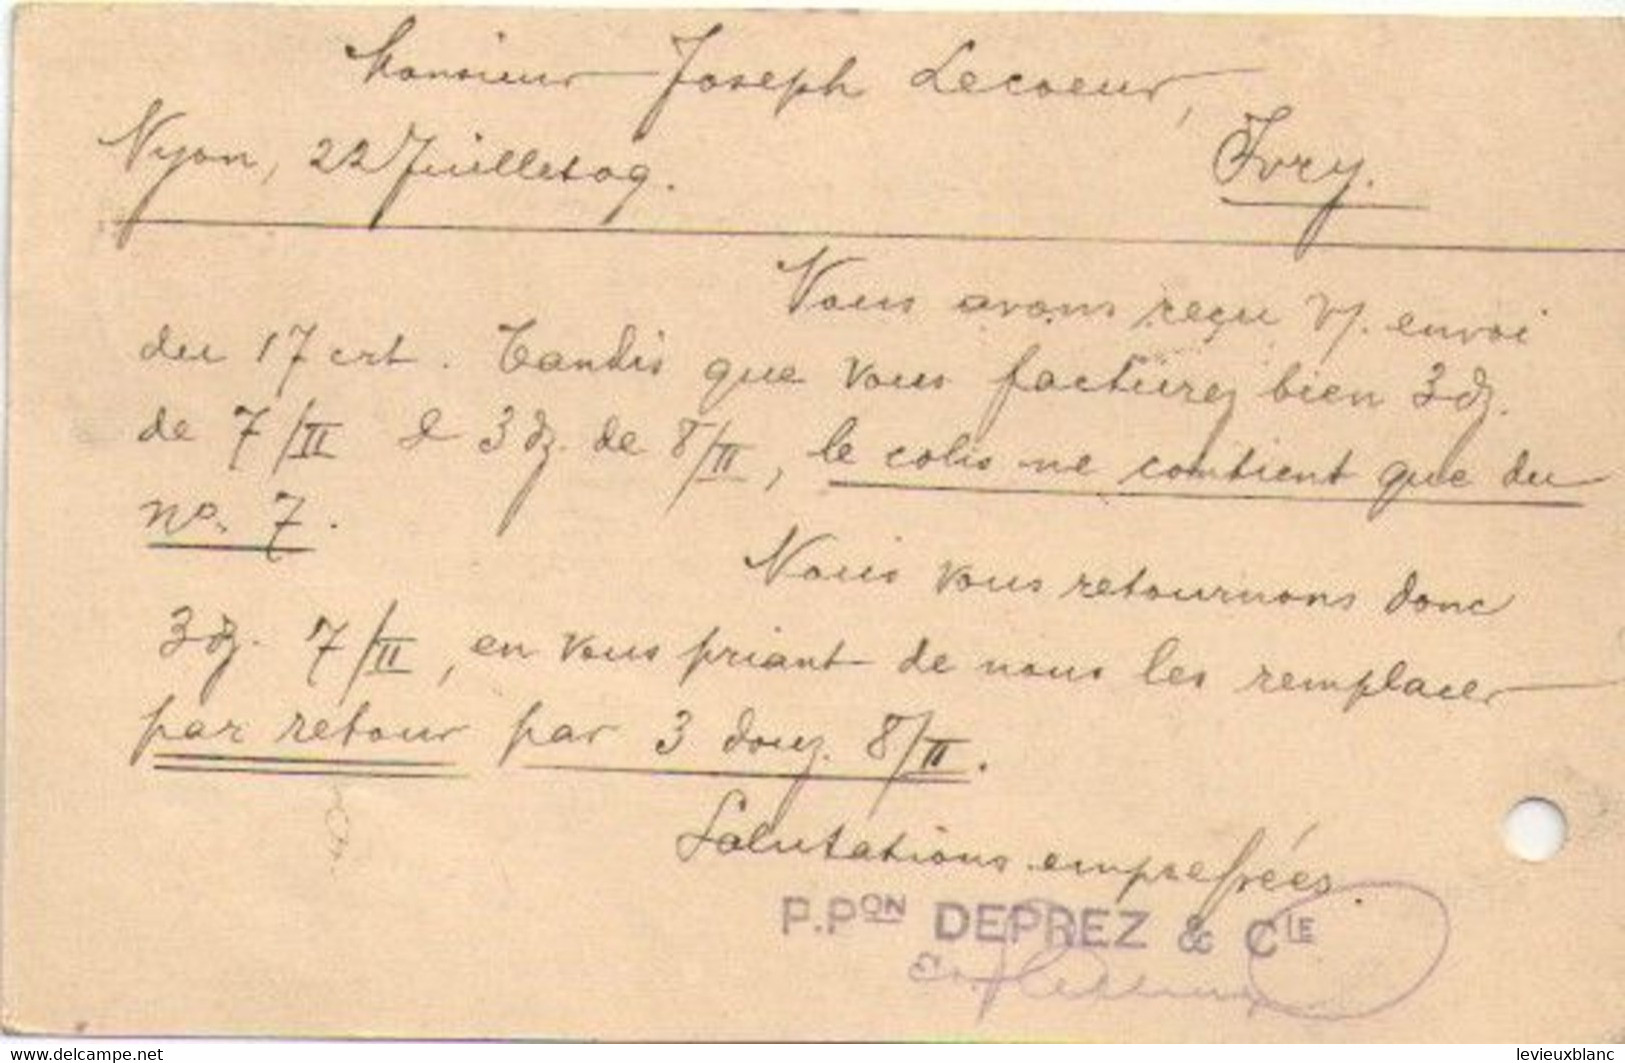 Monsieur Joseph Lecoeur,
Nyon, 22 Juillet 09.
Ivry.
Nous avons reçu v/. envoi
du 17 crt. Tandis que vous facturez bien 3 dz.
de 7/II & 3 dz. de 8/II, le colis ne contient que du
no. 7.
Nous vous retournons donc
3 dz. 7/II, en vous priant de nous les remplacer
par retour par 3 douz. 8/II.
Salutations empressées.
P.PON DEPREZ & CIE
levieuxblanc
www.delcampe.net